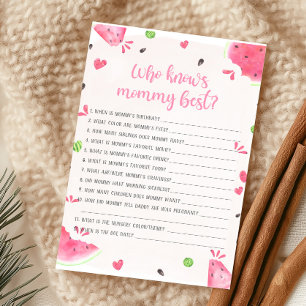 Who knows
mommy best?
1. WHEN IS MOMMY'S BIRTHDAY?
2. WHAT COLOR ARE MOMMY'S EYES?
3. HOW MANY SIBLINGS DOES MOMMY HAVE?
4. WHAT IS MOMMY'S FAVORITE MOVIE?
5. WHAT IS MOMMY'S FAVORITE DRINK?
6. WHAT IS MOMMY'S FAVORITE FOOD?
7. WHAT ARE/WERE MOMMY'S CRAVINGS?
8. DID MOMMY HAVE MORNING SICKNESS?
9. HOW MANY CHILDREN DOES MOMMY WANT?
10. HOW DID MOMMY TELL DADDY SHE WAS PREGNANT?
11. WHAT IS THE NURSERY COLOR/THEME?
WHEN IS THE DUE DATE?